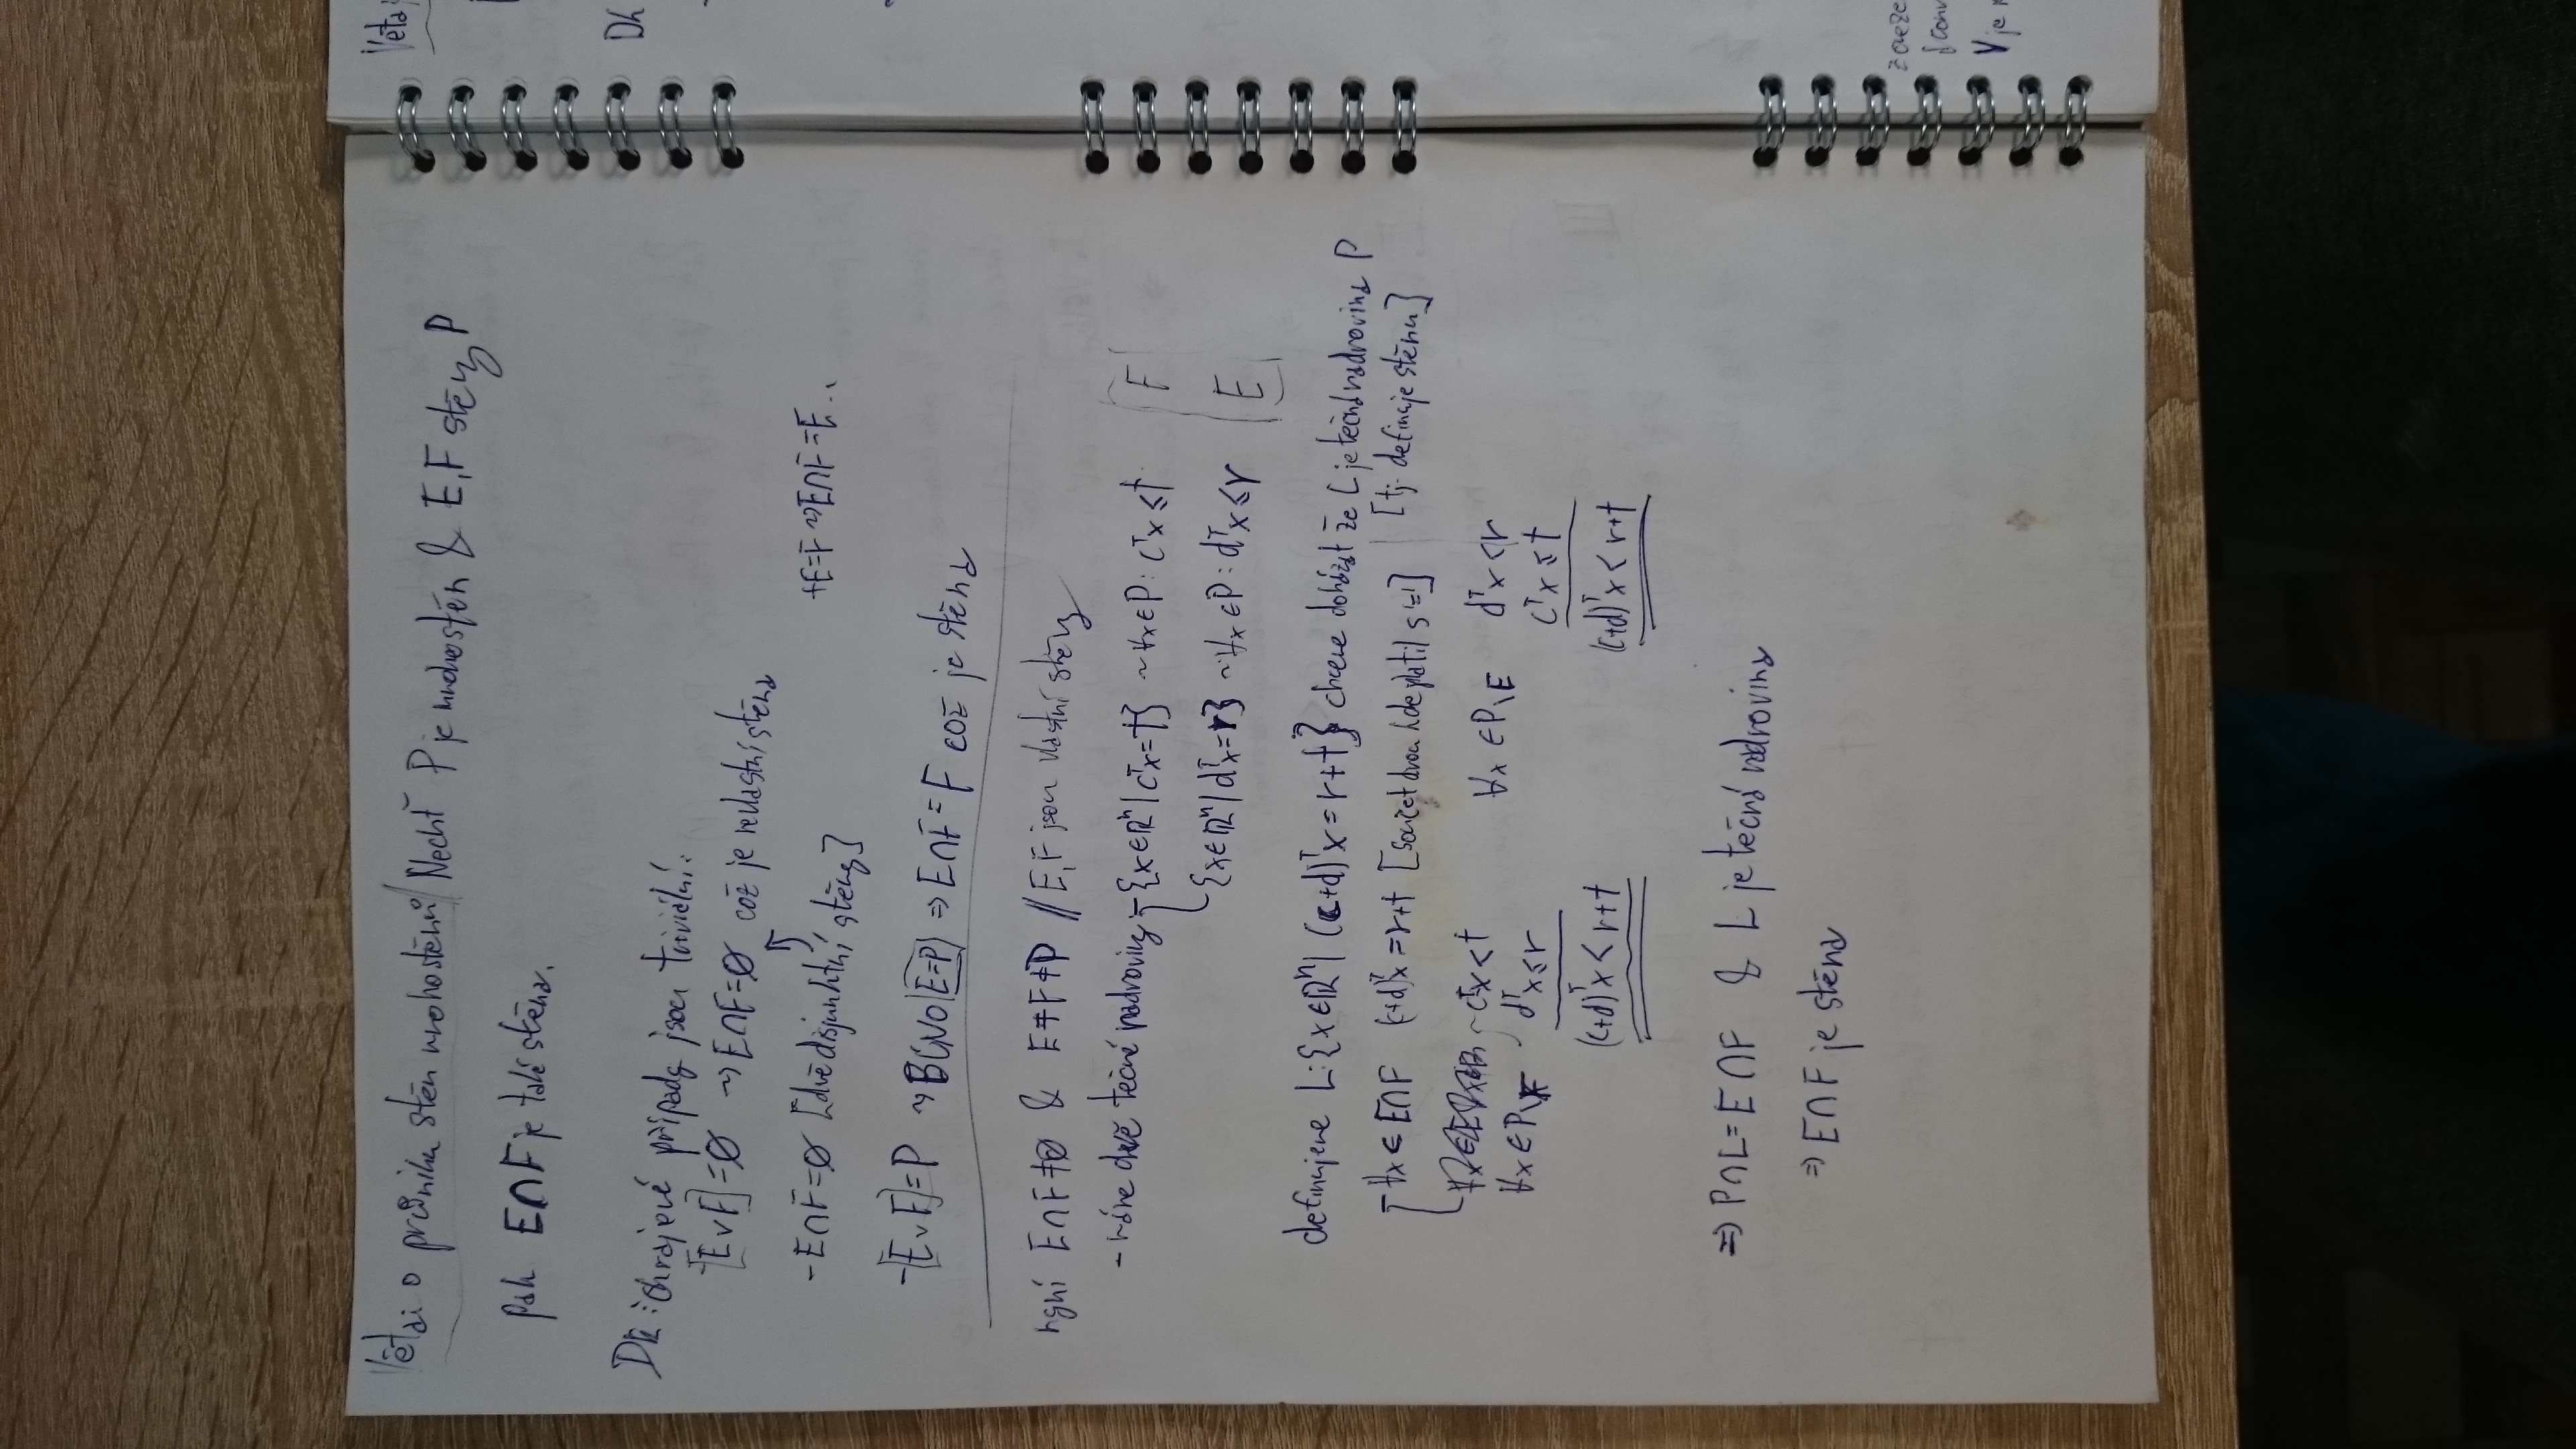 Věta: o průniku stěn mnohostěnů // Nechť P je mnohostěn & E, F stěny P
pak E∩F je také stěna.
Dk: okrajové případy jsou triviální:
-[E v F] = ∅ ~> E∩F = ∅ což je nevlastní stěna
-E∩F = ∅ [dvě disjunktní stěny]
+E=F ~> E∩F = E..
-[E v F] = P ~> BÚNO [E=P] => E∩F = F což je stěna
nyní E∩F ≠ ∅ & E≠F≠P // E, F jsou vlastní stěny
- máme dvě tečné nadroviny - {x∈ℝⁿ | cᵀx = t} ~ ∀x∈P: cᵀx ≤ t F
{x∈ℝⁿ | dᵀx = r} ~ ∀x∈P: dᵀx ≤ r E
definujeme L: {x∈ℝⁿ | (c+d)ᵀx = r+t} chceme dokázat že L je tečná nadrovina P
[tj. definuje stěnu]
- ∀x ∈ E∩F (c+d)ᵀx = r+t [součet dvou kde platil s =]
∀x ∈ P\F ~ cᵀx < t
dᵀx ≤ r
(c+d)ᵀx < r+t
∀x ∈ P\E dᵀx < r
cᵀx ≤ t
(c+d)ᵀx < r+t
=> P∩L = E∩F & L je tečná nadrovina
=> E∩F je stěna
Věta
Dk
V je